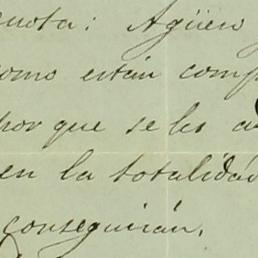 cuota: Agüen
como están comp
por que se les a
en la totalidad
conseguirán.